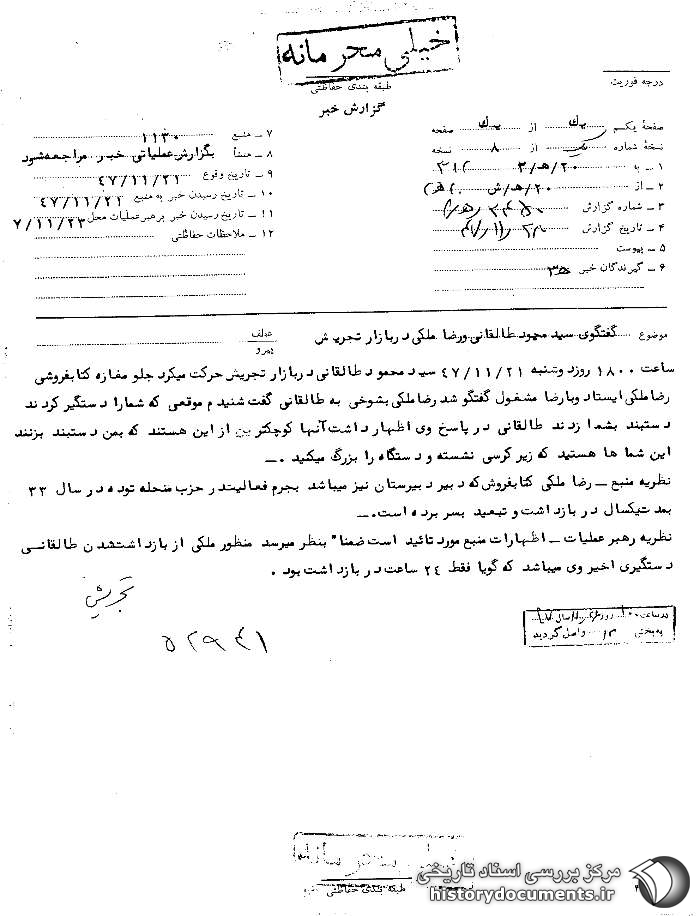 خیلی محرمانه
طبقه بندی حفاظتی
گزارش خبر
درجه فوریت
صفحه یکم از یک صفحه
نسخه شماره یک از ۸ نسخه
۱ ـ به ۲۰/هـ/۳
۲ ـ از ۲۰/هـ/ش
۳ ـ شماره گزارش
۴ ـ تاریخ گزارش
۵ ـ پیوست
۶ ـ گیرندگان خبر
۷ ـ منبع ۱۱۳۰
۸ ـ منشأ بگزارش عملیاتی خبر مراجعه شود
۹ ـ تاریخ وقوع ۴۷/۱۱/۲۱
۱۰ ـ تاریخ رسیدن خبر به منبع ۴۷/۱۱/۲۱
۱۱ ـ تاریخ رسیدن خبر برهبر عملیات محل ۷/۱۱/۲۳
۱۲ ـ ملاحظات حفاظتی
موضوع گفتگوی سید محمود طالقانی ورضا ملکی دربازار تجریش
عطف
پیرو
ساعت ۱۸۰۰ روز دوشنبه ۴۷/۱۱/۲۱ سید محمود طالقانی دربازار تجریش حرکت میکرد جلو مغازه کتابفروشی
رضاملکی ایستاد وبارضا مشغول گفتگو شد رضاملکی بشوخی به طالقانی گفت شنیدم موقعی که شمارا دستگیر کردند
دستبند بشما زدند طالقانی در پاسخ وی اظهار داشت آنها کوچکترین از این هستند که بمن دستبند بزنند
این شما ها هستید که زیر کرسی نشسته و دستگاه را بزرگ میکنید .ـ
نظریه منبع ـ رضا ملکی کتابفروش که دبیر دبیرستان نیز میباشد بجرم فعالیت در حزب منحله توده در سال ۳۳
بمدت یکسال در بازداشت و تبعید بسر برده است.ـ
نظریه رهبر عملیات ـ اظهارات منبع مورد تائید است ضمنا" بنظر میرسد منظور ملکی از بازداشت شدن طالقانی
دستگیری اخیر وی میباشد که گویا فقط ۲۴ ساعت در بازداشت بود .
تجریش
۵۲۹۴۱
در ساعت روز سال
به بخش ۳ واصل گردید
خیلی محرمانه
طبقه بندی حفاظتی
مرکز بررسی اسناد تاریخی
historydocuments.ir